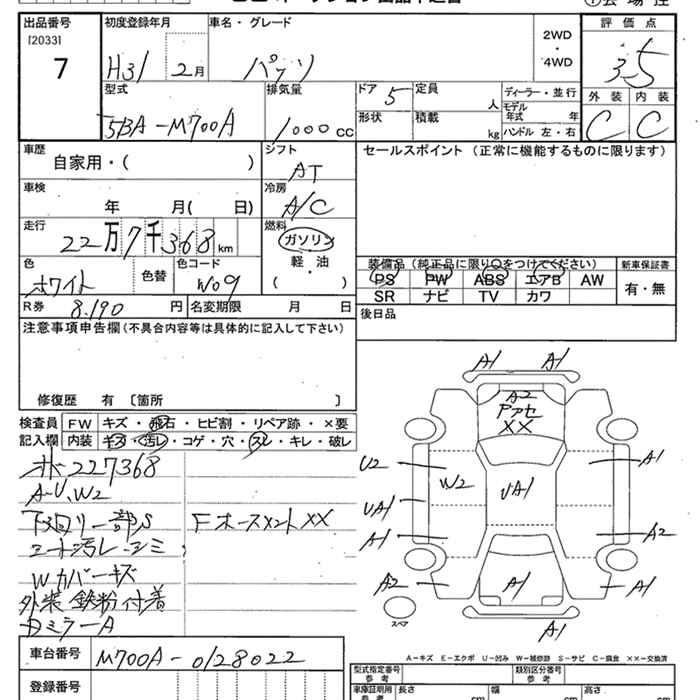 出品番号
[2033]
7
初度登録年月
H31 2月
車名・グレード
パッソ
2WD
・
4WD
評価点
3.5
外装 内装
C C
型式
5BA-M700A
排気量
1000 CC
ドア 5
定員
人
形状
積載
kg
ディーラー・並行
モデル年式 年
ハンドル 左・右
車歴
自家用・( )
シフト
AT
セールスポイント (正常に機能するものに限ります)
車検
年 月( 日)
冷房
A/C
走行
22万7千368km
燃料
ガソリン
軽・油
( )
色
ホワイト
色替
色コード
W09
装備品 (純正品に限り○をつけてください)
PS PW ABS エアB AW
SR ナビ TV カワ
新車保証書
有・無
R券 8,190 円
名変期限 月 日
後日品
注意事項申告欄(不具合内容等は具体的に記入して下さい)
修復歴 有 〔箇所 〕
検査員
記入欄
FW キズ・飛石・ヒビ割・リペア跡・×要
内装 キズ・汚レ・コゲ・穴・スレ・キレ・破レ
メ-227368
A-U、W2
下回リ一部S
シート汚レ・シミ
Wカバーキズ
外装 鉄粉付着
Dミラー A
Fホースメント××
A1 A1
A2
××
U2
W2
UA1
A1
UA1
A1
A2
A2
A1
A1
A1
スペア
A-キズ E-エクボ U-凹み W-補修跡 S-サビ C-腐食 ××-交換済
車台番号
M700A-0128022
登録番号
型式指定番号
参考
類別区分番号
参考
車庫証明用
参考
長さ cm
幅 cm
高さ cm